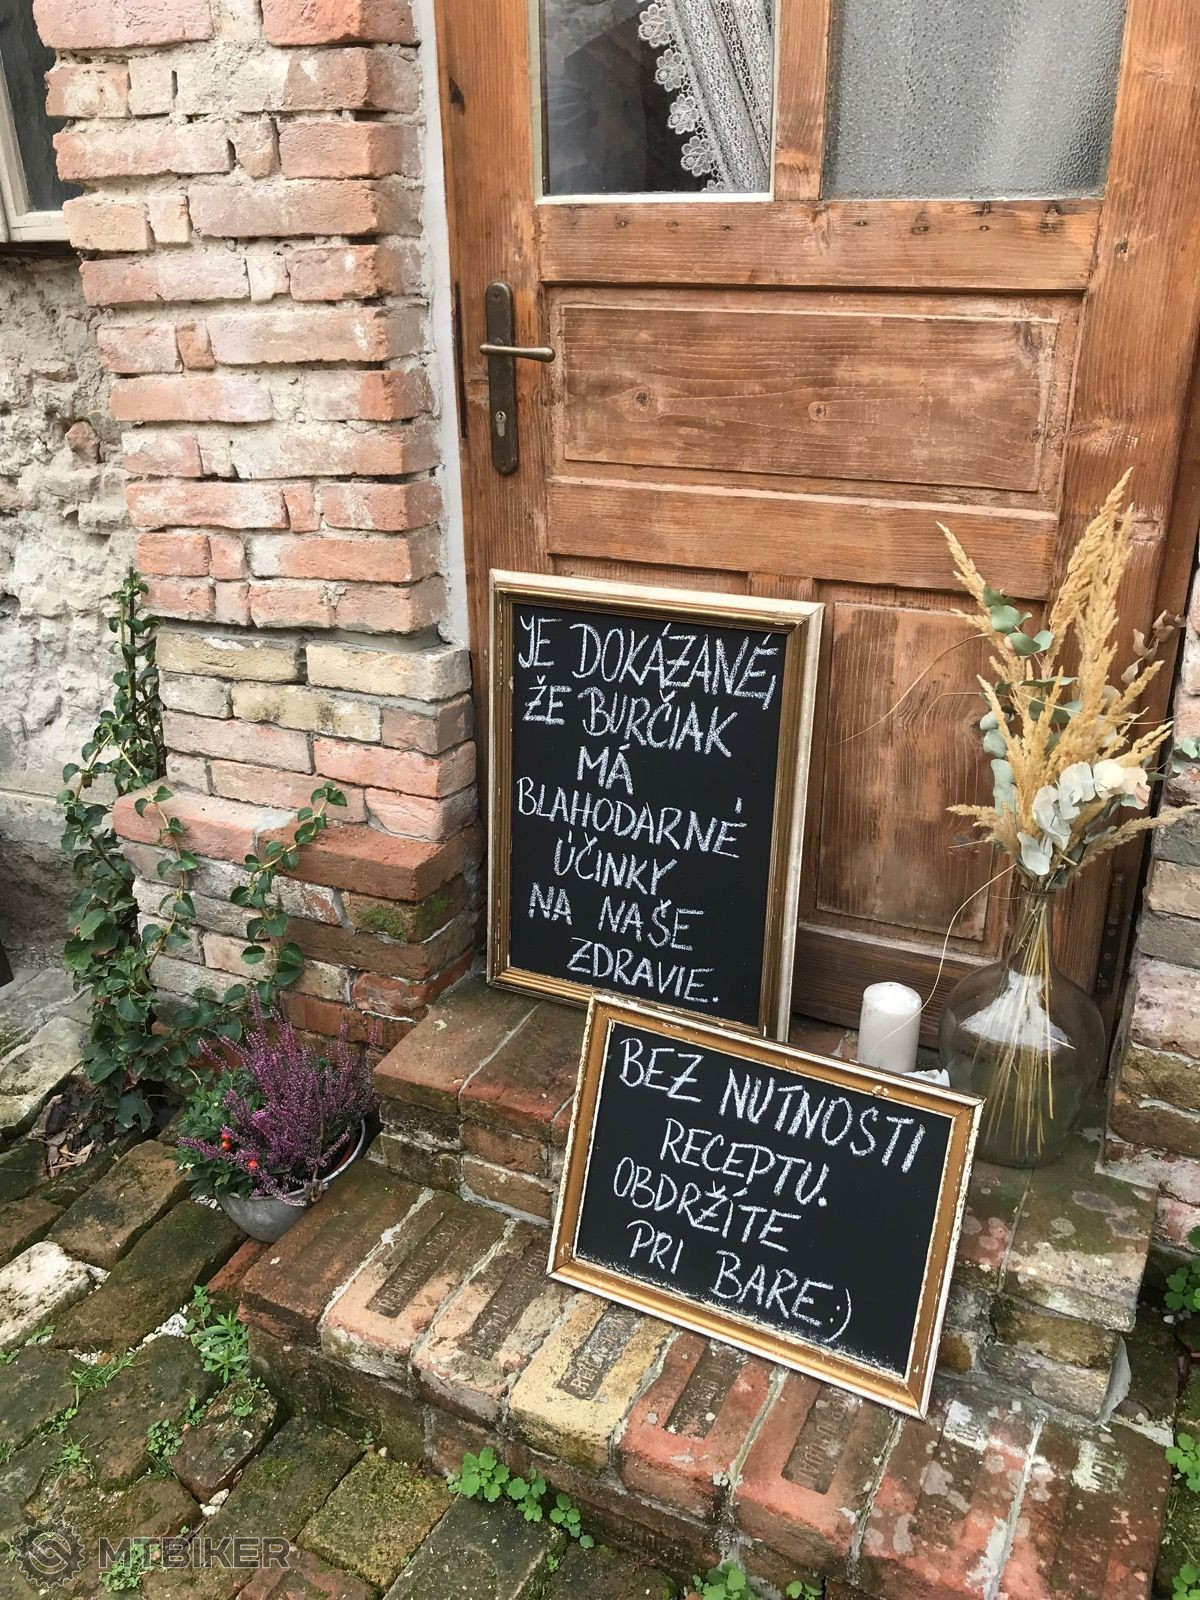 JE DOKÁZANÉ,
ŽE BURČIAK
MÁ
BLAHODARNÉ
ÚČINKY
NA NAŠE
ZDRAVIE.
BEZ NUTNOSTI
RECEPTU.
OBDRŽÍTE
PRI BARE:)
MTBIKER